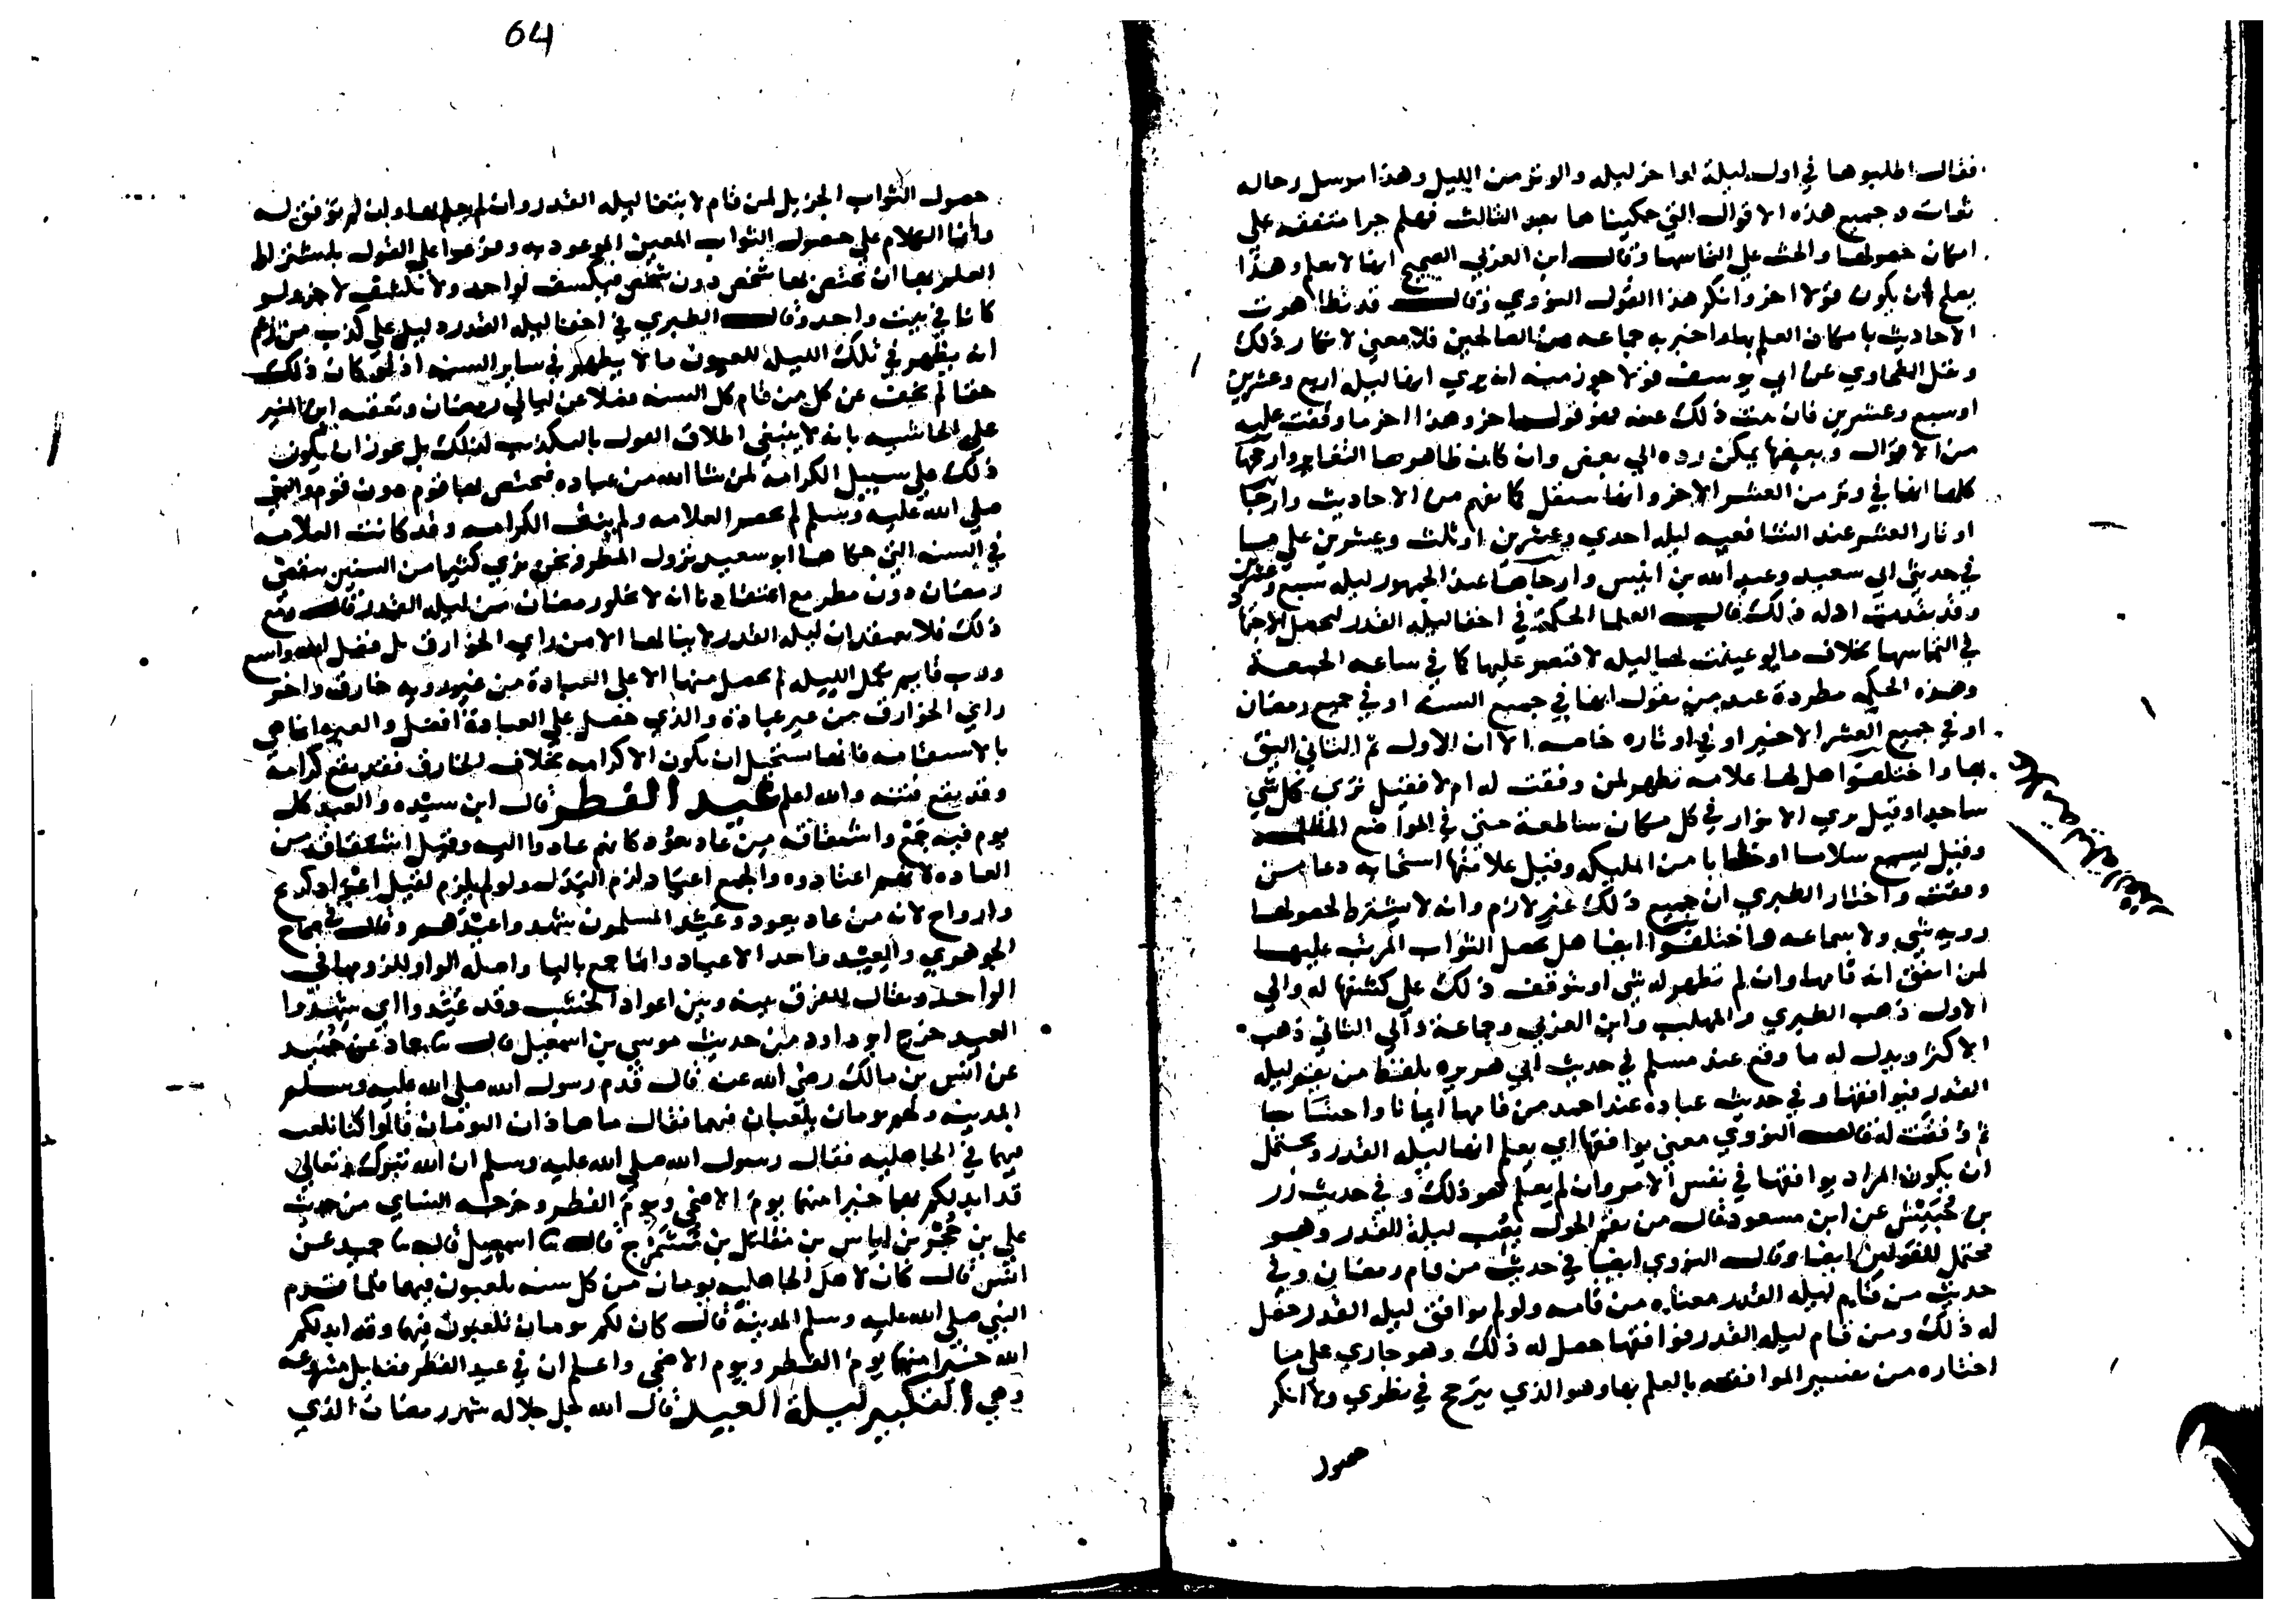 فقال اطلبوها في اول ليلة او اخر ليله والوتر من الليل وهذا مرسل رجاله
ثقات وجميع هذه الاقوال التي حكيناها بعد الثالث فهلم جرا متفقه علي
امكان حصولها والحث علي التماسها وقال ابن العربي الصحيح انها لا تعلم وهذا
يصلح ان يكون قولا اخر وانكر هذا القول النووي وقال قد تظاهرت
الاحاديث بامكان العلم بها واخبر به جماعه من الصالحين فلا معني لانكار ذلك
ونقل الطحاوي عن ابي يوسف قولا جوز منه انه يري انها ليله اربع وعشرين
او سبع وعشرين فان ثبت ذلك عنه فهو قول اخر وهذا اخر ما وقفت عليه
من الاقوال وبعضها يمكن رده الي بعض وان كان ظاهرها التغاير وارجحها
كلها انها في وتر من العشر الاخر وانها تنتقل كما يفهم من الاحاديث وارجحها
اوتار العشر عند الشافعيه ليله احدي وعشرين او ثلث وعشرين علي ما
في حديثي ابي سعيد وعبد الله بن انيس وارجاها عند الجمهور ليله سبع وعشرين
وقد تقدمت ادله ذلك قال العلما الحكمه في اخفا ليله القدر ليحصل الاجتهاد
في التماسها بخلاف ما لو عينت لها ليله لاقتصر عليها كما في ساعه الجمعة
وهذه الحكمه مطردة عند من يقول انها في جميع السنه او في جميع رمضان
او في جميع العشر الاخير او في اوتاره خاصه الا ان الاول ثم الثاني اليق
بها واختلفوا هل لها علامه تظهر لمن وفقت له ام لا فقيل يري كل شي
ساجدا وقيل يري الانوار في كل مكان ساطعة حتي في المواضع المظلمه
وقيل يسمع سلاما او خطابا من المليكه وقيل علامتها استجابه دعا من
وفقت واختار الطبري ان جميع ذلك غير لازم وانه لا يشترط لحصولها
رويه شي ولا سماعه واختلفوا ايضا هل يحصل الثواب المرتب عليها
لمن اتفق انه قامها وان لم تظهر له شي او يتوقف ذلك علي كشفها له والي
الاول ذهب الطبري والمهلب وابن العربي وجماعة والي الثاني ذهب
الاكثر ويدل له ما وقع عند مسلم في حديث ابي هريره بلفظ من يقم ليله
القدر فيوافقها وفي حديث عباده عند احمد من قامها ايمانا واحتسابا
ثم وفقت له قال النووي معني يوافقها اي يعلم انها ليله القدر ويحتمل
ان يكون المراد يوافقها في نفس الامر وان لم يعلم هو ذلك وفي حديث زر
بن حُبَيْش عن ابن مسعود قال من يقم الحول يُصِب ليلة القدر وهو
محتمل للقولين ايضا وقال النووي ايضا في حديث من قام رمضان وفي
حديث من قام ليله القدر معناه من قامه ولو لم يوافق ليله القدر حصل
له ذلك ومن قام ليله القدر فوافقها حصل له ذلك وهو جاري علي ما
اختاره من تفسير الموافقه بالعلم بها وهو الذي يترجح في نظري ولا انكر
حصول
64
حصول الثواب الجزيل لمن قام لابتغا ليله القدر وان لم يعلم بها ولو لم توفق له
وانما الكلام علي حصول الثواب المعين الموعود به وفرعوا علي القول باشتراط
العلم بها ان يختص بها شخص دون شخص فيكشف لواحد ولا تكشف لاخر ولو
كانا في بيت واحد وقال الطبري في اخفا ليله القدر دليل علي كذب من زعم
انه يظهر في تلك الليله للعيون ما لا يظهر في ساير السنه اذ لو كان ذلك
حقا لم يخف عن كل من قام كل السنه فضلا عن ليالي رمضان وتعقبه ابن المنير
علي الحاشيه بانه لا ينبغي اطلاق القول بالتكذيب لذلك بل يجوز ان يكون
ذلك علي سبيل الكرامة لمن شا الله من عباده فيختص بها قوم دون قوم والنبي
صلي الله عليه وسلم لم يحصر العلامه ولم ينف الكرامه وقد كانت العلامه
في السنه التي حكاها ابو سعيد نزول المطر ونحن نري كثيرا من السنين ينقضي
رمضان دون مطر مع اعتقادنا انه لا يخلو رمضان من ليله القدر قال ومع
ذلك فلا نعتقد ان ليله القدر لا ينالها الا من راي الخوارق بل فضل الله واسع
ورب قايم تلك الليله لم يحصل منها الا علي العبادة من غير رويه خارق واخر
راي الخوارق من غير عبادة والذي حصل علي العبادة افضل والعبره انما هي
بالاستقامه فانها تستحيل ان يكون الا كرامه بخلاف الخارق فقد يقع كرامة
وقد يقع فتنه والله اعلم عيد الفطر قال ابن سيده والعيد كل
يوم فيه جَمْع واشتقاقه من عَاد يعُود كانهم عادوا اليه وقيل اشتقاقه من
العاده لانهم اعتادوه والجمع اعياد لزم البدل ولو لم يلزم لقيل اعواد كريح
وارواح لانه من عاد يعود وعَيَّد المسلمون شهدوا عيدهم وقال في صحاح
الجوهري والعيد واحد الاعياد وانما جمع باليا واصله الواو للزومها في
الواحد ويقال للفرق بينه وبين اعواد الخشب وقد عَيَّدوا اي شهدوا
العيد خرج ابو داود من حديث موسي بن اسمعيل قال ثنا حماد عن حُمَيد
عن انس بن مالك رضي الله عنه قال قدم رسول الله صلي الله عليه وسلم
المدينه ولهم يومان يلعبان فيهما فقال ما هاذان اليومان قالوا كنا نلعب
فيهما في الجاهليه فقال رسول الله صلي الله عليه وسلم ان الله تبرك وتعالي
قد ابدلكم بهما خيرا منهما يوم الاضحي ويوم الفطر وخرجه النساي من حديث
علي بن حُجْر بن اياس بن مقاتل بن مُشَمْرِج قال ثنا اسمعيل قال ثنا حميد عن
انس قال كان لاهل الجاهليه يومان من كل سنه يلعبون فيهما فلما قدم
النبي صلي الله عليه وسلم المدينة قال كان لكم يومان تلعبون فيهما وقد ابدلكم
الله خيرا منهما يوم الفطر ويوم الاضحي واعلم ان في عيد الفطر فضايل مشروعه
وهي التكبير ليلة العيد قال الله جل جلاله شهر رمضان الذي